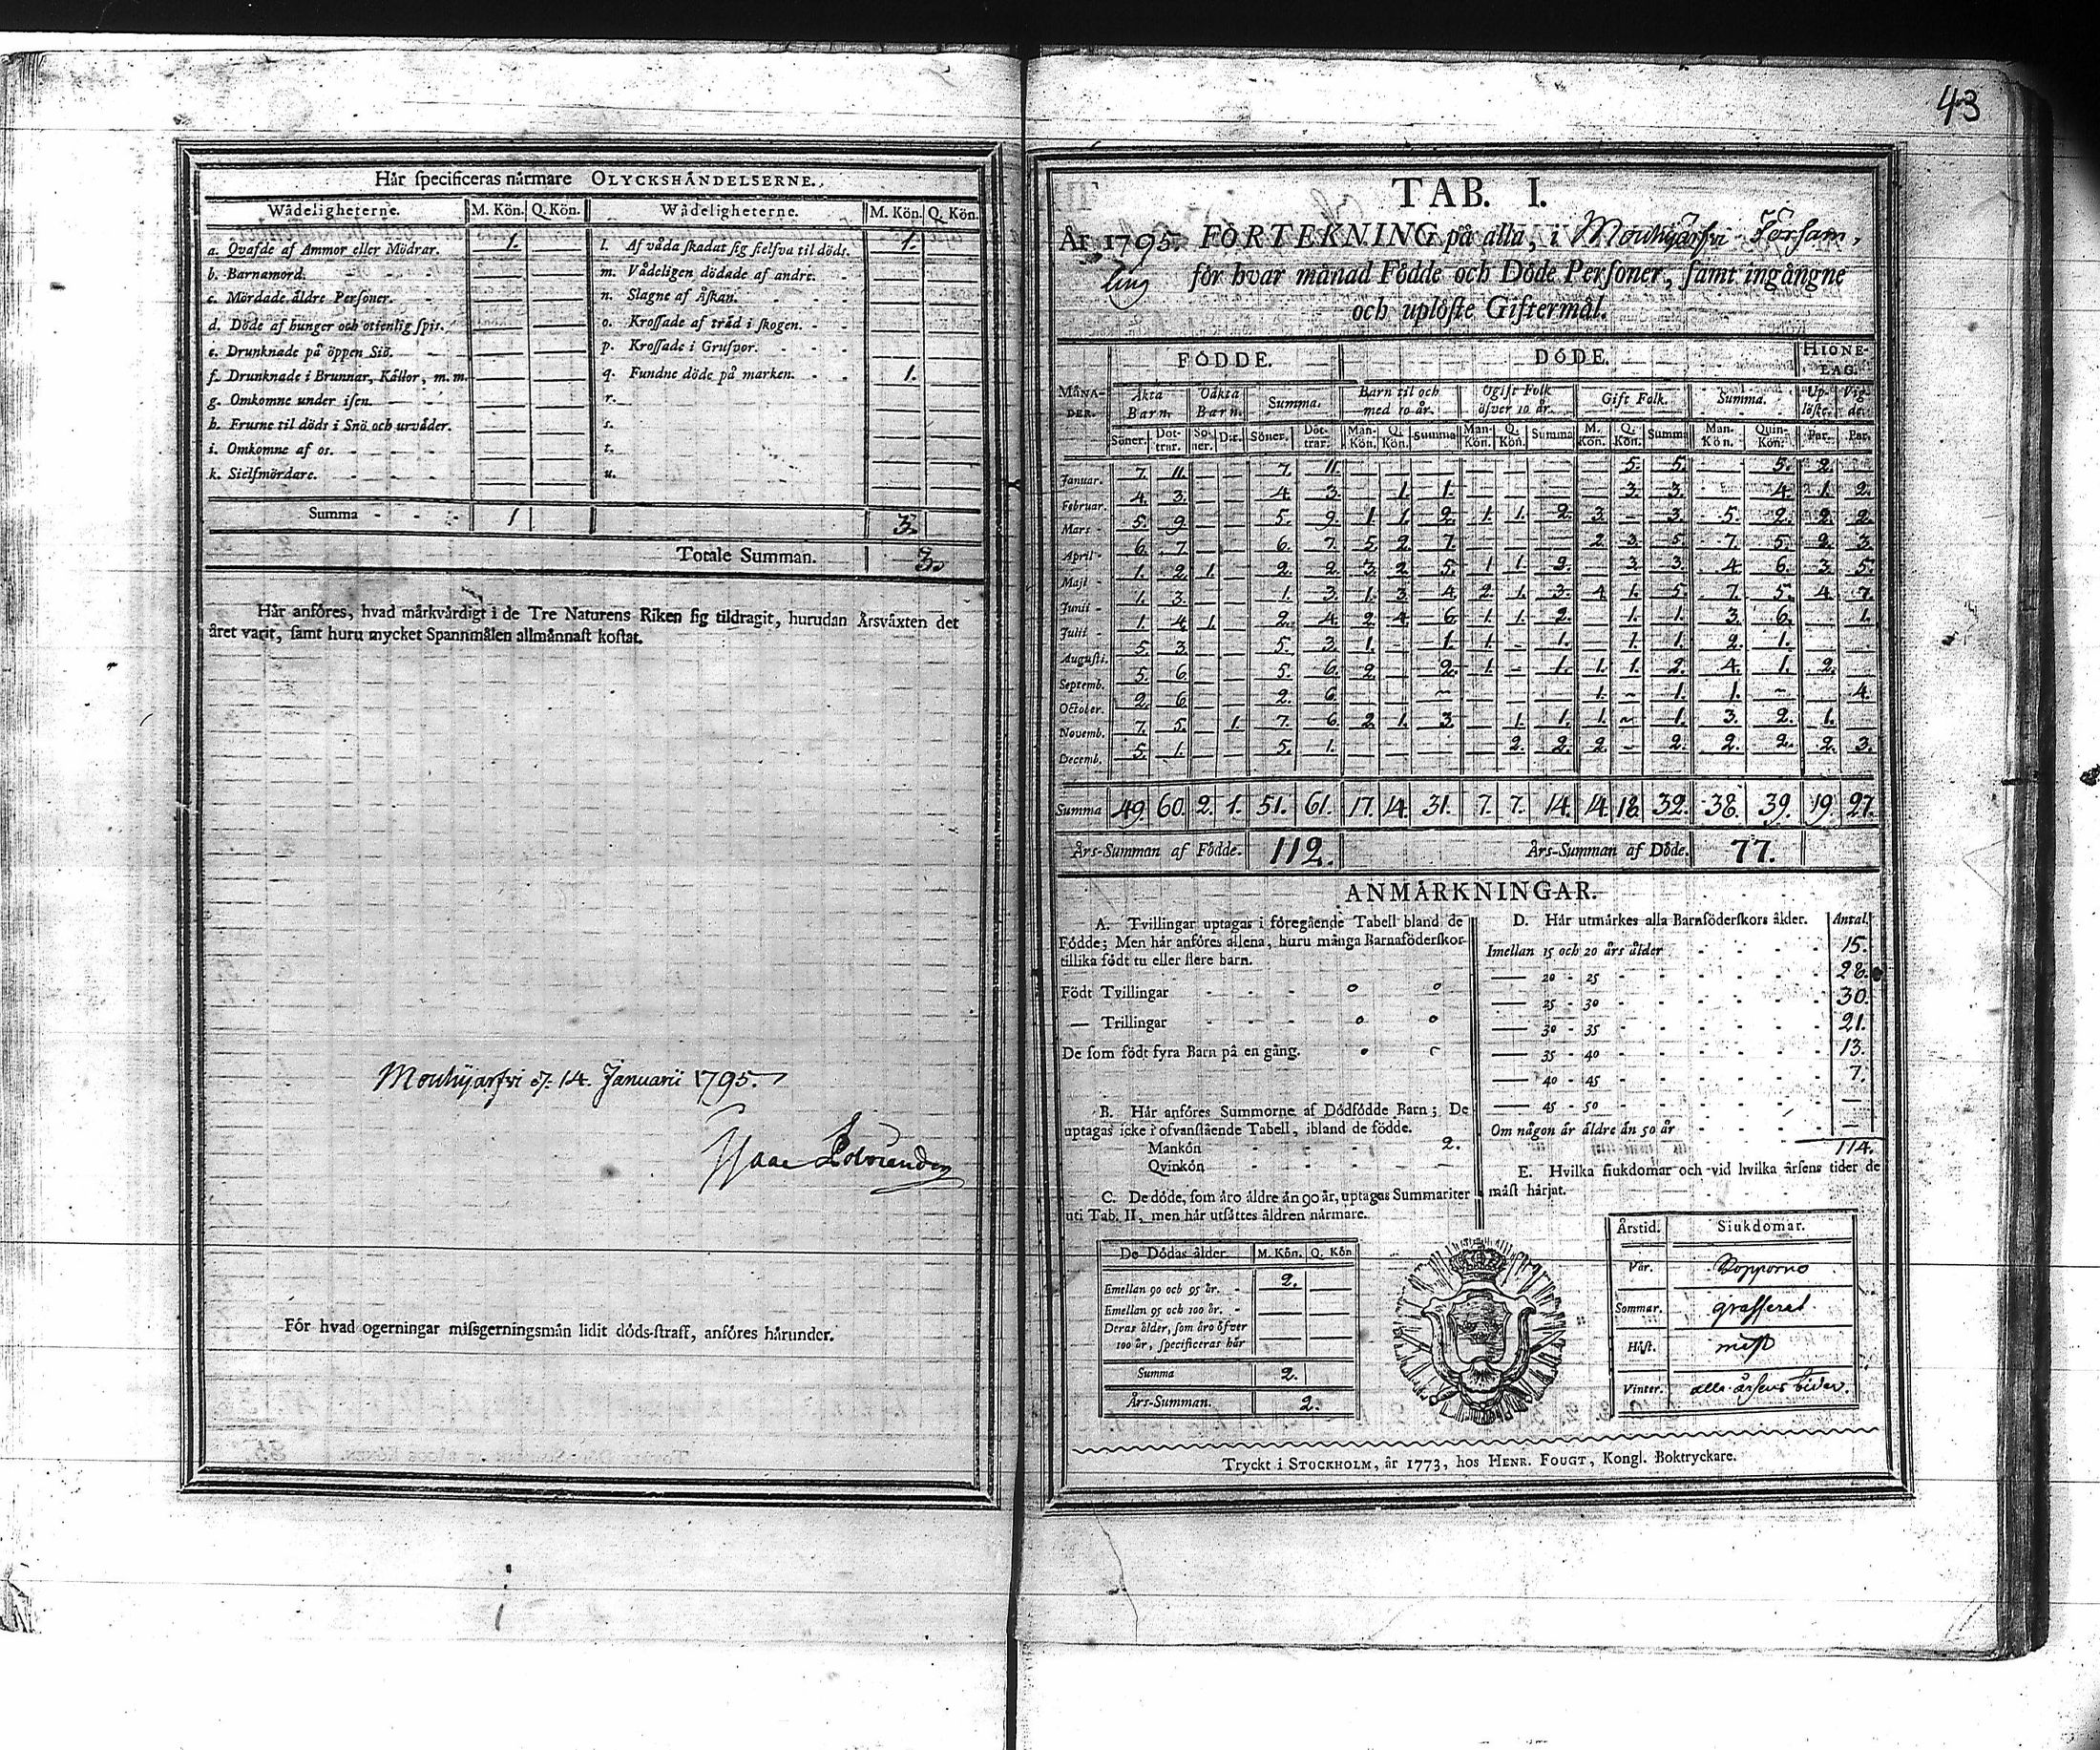 43
Här specificeras närmare OLYCKSHÄNDELSERNE.
Wådeligheterne. M. Kön. Q. Kön. Wådeligheterne. M. Kön. Q. Kön.
a. Qvafde af Ammor eller Mödrar. 1. — l. Af våda skadat sig sielfva til döds. 1. —
b. Barnamord. — — m. Vådeligen dödade af andre. — —
c. Mördade äldre Personer. — — n. Slagne af Åskan. — —
d. Döde af hunger och otienlig spis. — — o. Krossade af träd i skogen. — —
e. Drunknade på öppen Siö. — — p. Krossade i Grufvor. — —
f. Drunknade i Brunnar, Källor, m. m. — — q. Fundne döde på marken. 1. —
g. Omkomne under isen. — — r. — —
h. Frusne til döds i Snö och urväder. — — s. — —
i. Omkomne af os. — — t. — —
k. Sielfmördare. — — u. — —
Summa 1 3.
Totale Summan. 3.
Här anföres, hvad märkvärdigt i de Tre Naturens Riken sig tildragit, hurudan Årsväxten det
året varit, samt huru mycket Spannmålen allmännast kostat.
Mouhijarfvi d: 14. Januarii 1795.
Isaac
För hvad ogerningar missgerningsmän lidit döds-straff, anföres härunder.
TAB. I.
År 1795. FÖRTEKNING på alla, i Mouhijärfvi Försam,
ling för hvar månad Födde och Döde Personer, samt ingångne
och uplöste Giftermål.
FÖDDE. DÖDE. HIONE-LAG.
MÅNA-DER. Äkta Barn. Oäkta Barn. Summa. Barn til och med 10 år. Ogift Folk öfver 10 år. Gift Folk. Summa. Up-löste. Vig-de.
Söner. Döt-trar. Sö-ner. Dtr. Söner. Döt-trar. Man-Kön. Q. Kön. Summa Man-Kön. Q. Kön. Summa M. Kön. Q. Kön. Summa Man-Kön. Quin-Kön. Par. Par.
Januar. 7. 11. — — 7. 11. — — — — — — — 5. 5. — 5. 2. —
Februar. 4. 3. — — 4. 3. — 1. 1. — — — — 3. 3. — 4. 1. 2.
Mars 5. 9. — — 5. 9. 1. 1. 2. 1. 1. 2. 3. — 3. 5. 2. 2. 2.
April 6. 7. — — 6. 7. 5. 2. 7. — — — 2. 3. 5. 7. 5. 2. 3.
Maji 1. 2. 1. — 2. 2. 3. 2. 5. 1. 1. 2. — 3. 3. 4. 6. 3. 5.
Junii 1. 3. — — 1. 3. 1. 3. 4. 2. 1. 3. 4. 1. 5. 7. 5. 4. 7.
Julii 1. 4. 1. — 2. 4. 2. 4. 6. 1. 1. 2. — 1. 1. 3. 6. — 1.
Augusti. 5. 3. — — 5. 3. 1. - 1. 1. - 1. — 1. 1. 2. 1. — —
Septemb. 5. 6. — — 5. 6. 2. — 2. 1. - 1. 1. 1. 2. 4. 1. 2. —
October. 2. 6. — — 2. 6. — — ~ — — — 1. ~ 1. 1. ~ — 4.
Novemb. 7. 5. — 1. 7. 6. 2. 1. 3. — 1. 1. 1. ~ 1. 3. 2. 1. —
Decemb. 5. 1. — — 5. 1. — — — — 2. 2. 2. - 2. 2. 2. 2. 3.
Summa 49. 60. 2. 1. 51. 61. 17. 14. 31. 7. 7. 14. 14. 18. 32. 38. 39. 19. 27.
Års-Summan af Födde. 112. Års-Summan af Döde. 77.
ANMÄRKNINGAR.
A. Tvillingar uptagas i föregående Tabell bland de
Födde; Men här anföres allena, huru många Barnaföderskor
tillika födt tu eller flere barn.
Födt Tvillingar 0 0
— Trillingar 0 0
De som födt fyra Barn på en gång.
B. Här anföres Summorne af Dödfödde Barn; De
uptagas icke i ofvanstående Tabell, ibland de födde.
Mankön 2.
Qvinkön —
C. De döde, som äro äldre än 90 år, uptagas Summariter
uti Tab. II, men här utsättes åldren närmare.
De Dödas ålder. M. Kön. Q. Kön
Emellan 90 och 95 år. 2. —
Emellan 95 och 100 år. — —
Deras ålder, som äro öfver
100 år, specificeras här — —
Summa 2.
Års-Summan. 2.
D. Här utmärkes alla Barnföderskors ålder. Antal.
Imellan 15 och 20 års ålder 15.
— 20 - 25 28.
— 25 - 30 30.
— 30 - 35 21.
— 35 - 40 13.
— 40 - 45 7.
— 45 - 50 —
Om någon är äldre än 50 år —
114.
E. Hvilka siukdomar och vid hvilka årsens tider de
mäst härjat.
Årstid. Siukdomar.
Vår. Kopporne
Sommar. grasserat
Höst. mest
Vinter. alla årsens tider.
Tryckt i STOCKHOLM, år 1773, hos HENR. FOUGT, Kongl. Boktryckare.